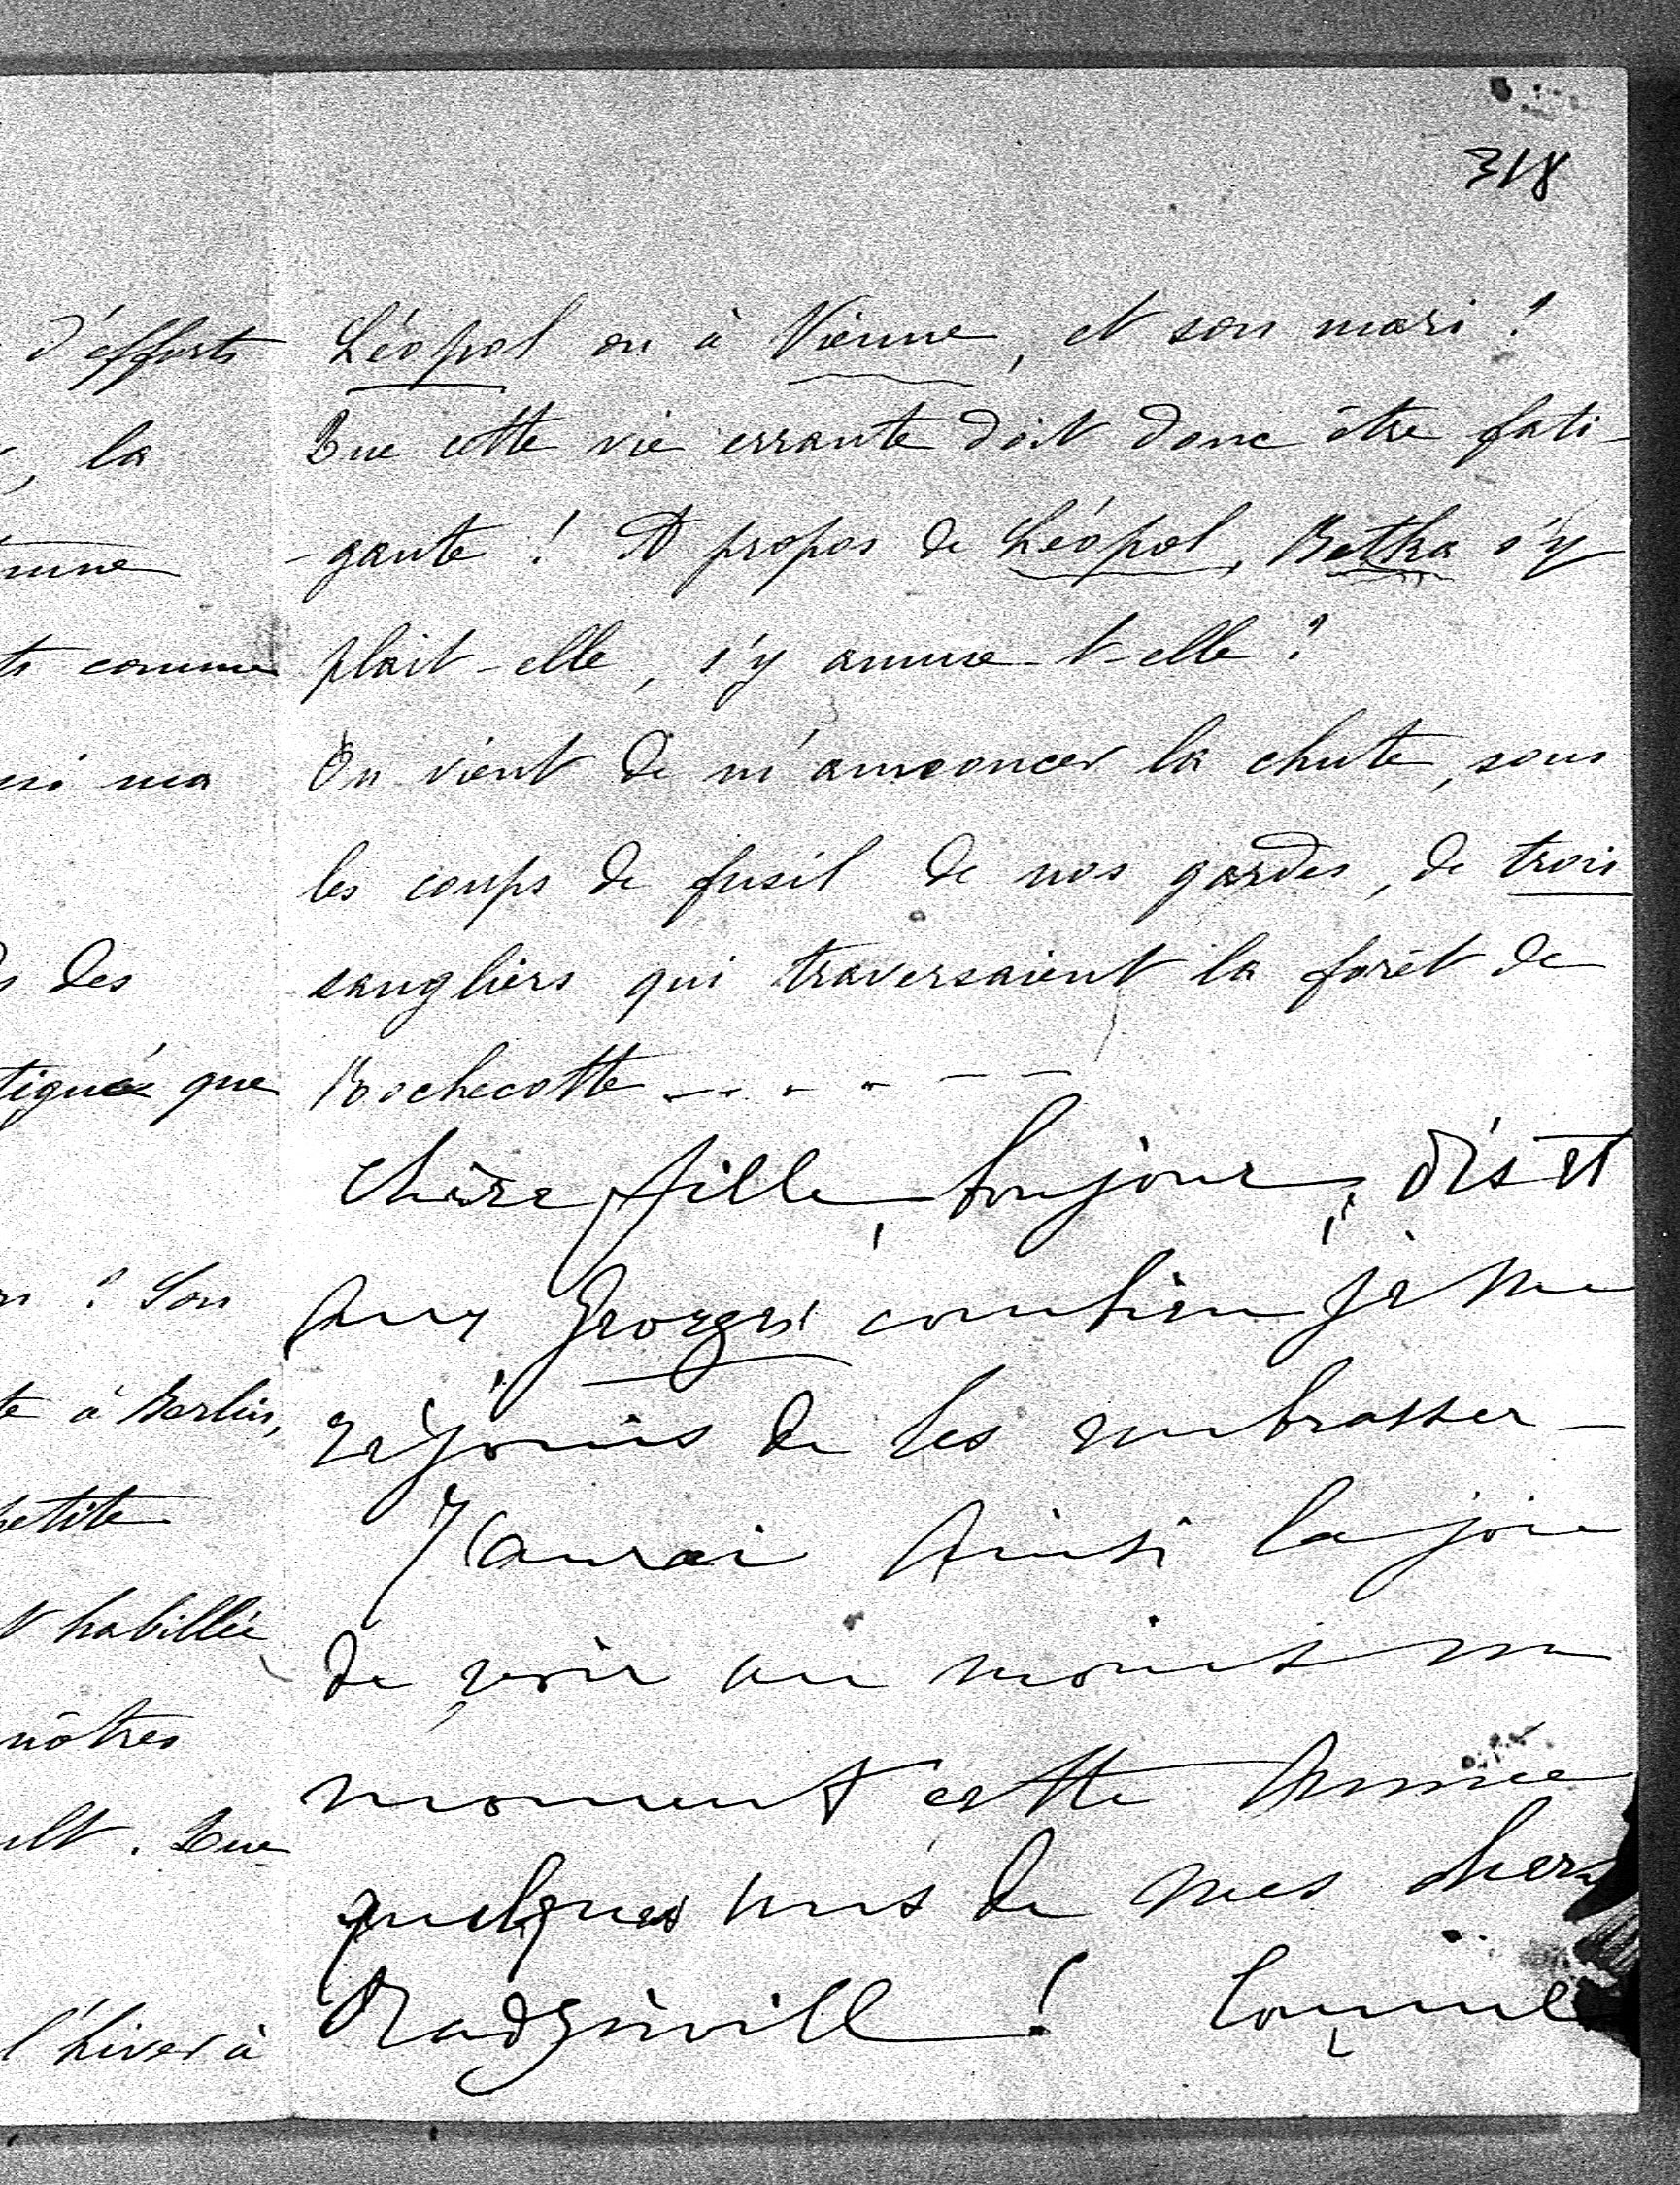 318
d'efforts
, la
ts comme
ma
des
tiguée que
? Son
te à Berlin,
petite
habillée
nôtres
ult. Que
l'hiver à
Léopol ou à Vienne, et son mari ?
Que cette vie errante doit donc être fati-
-gante ! A propos de Léopol, Betka s'y
plait-elle, s'y amuse-t-elle ?
On vient de m'annoncer la chute, sous
les coups de fusil de nos gardes, de trois
sangliers qui traversaient la forêt de
Rochecotte
Chère fille, bonjour, dis et
aux Georges combien je me
réjouis de les embrasser —
J'aurai ainsi la joie
de voir au moins un
moment cette année
quelques uns de mes chers
Radziwill !